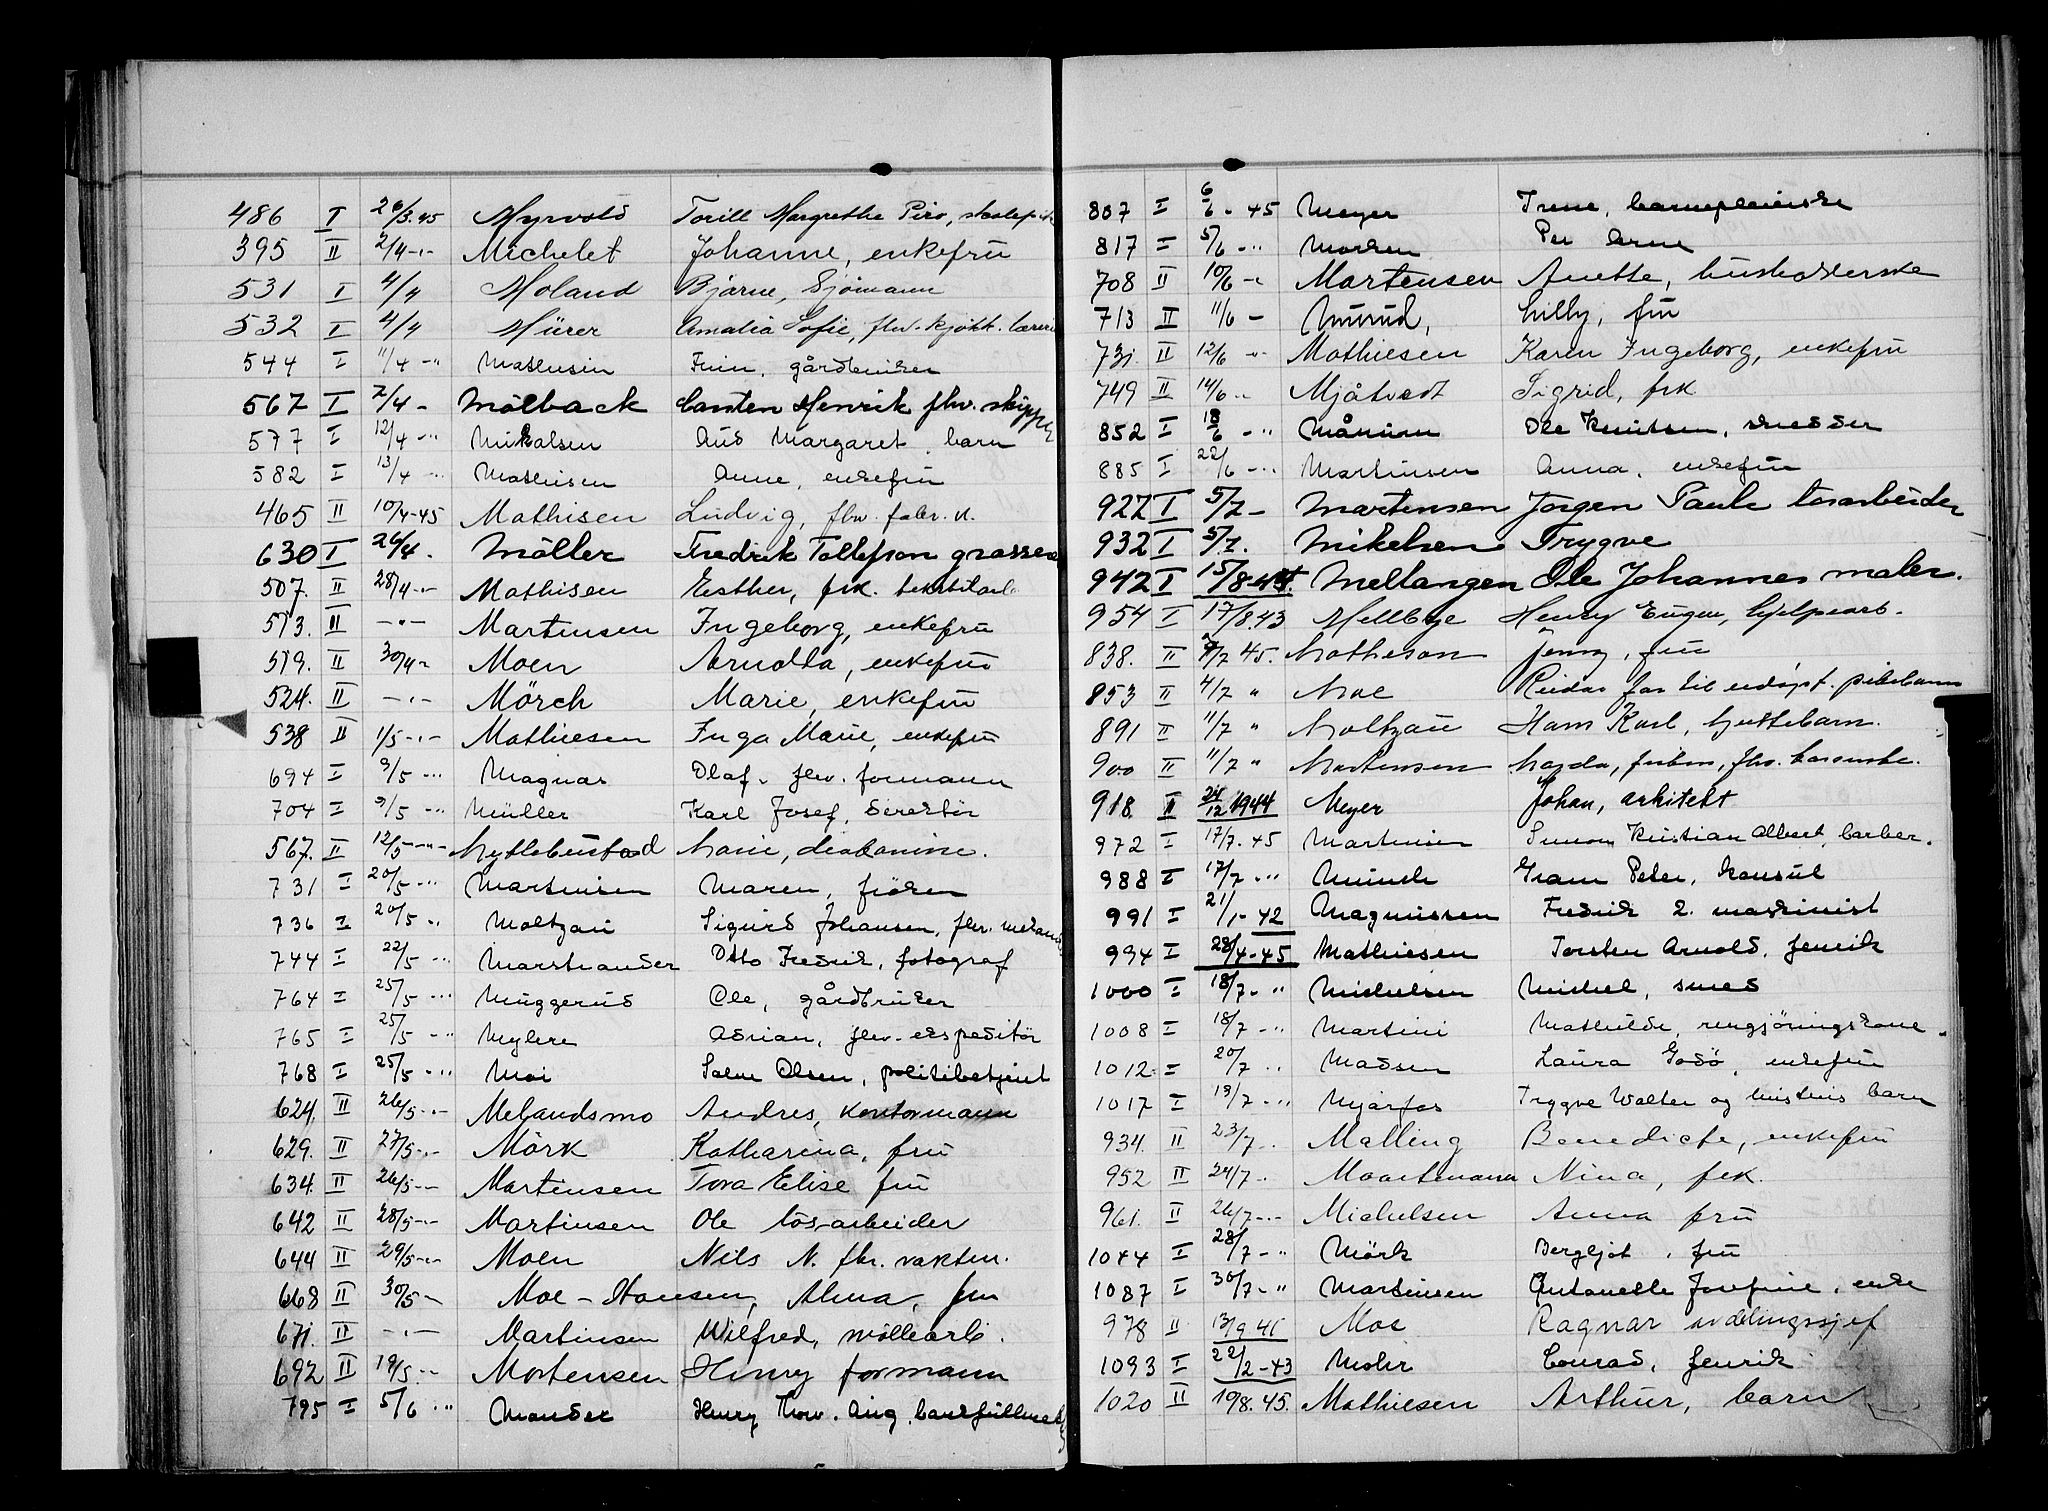 486 I 26/3.45 Myrvold Torill Margrethe Piro, skolepi
395 II 2/4 -"- Michelet Johanne, enkefru
531 I 4/4 Moland Bjarne, Sjømann
532 I 4/4 Mürer Amalia Sofie, fhv. kjøkk. lærer
544 I 11/4 -"- Mathisen Finn, gårdbruker
567 I 2/4 - Mølback Carsten Henrik fhv. skipp
577 I 12/4 -"- Mikalsen Aud Margaret, barn
582 I 13/4 -"- Mathisen Anne, enkefru
465 II 10/4-45 Mathisen Ludvig, fhv. fabr. a.
630 I 26/4. Möller Fredrik Tollefson grosser
507. II 28/4 -"- Mathisen Esther, frk. tekstilarb
513. II -"- Martinsen Ingeborg, enkefru
519. II 30/4 - Moen Arndtla, enkefru
524. II -"- Mörch Marie, enkefru
538 II 1/5 -"- Mathiesen Inga Marie, enkefru
694 I 9/5 -"- Magnus Olaf. fhv. formann
704 I 9/5 -"- Müller Karl Josef, direktør
567. II 12/5 -"- Myklebustad Marie, diakonisse.
731 I 20/5 -"- Martinsen Maren, frøken
736 I 20/5 -"- Moltzau Sigurd Johansen, fhv. mekan
744 I 22/5 -"- Marstrander Otto Fredrik, fotograf
764 I 25/5 -"- Muggerud Ole, gårdbruker
765 I 25/5 -"- Myhre Adrian, fhv. ekspeditør
768 I 25/5 -"- Moi Salve Olsen, politibetjent
624. II 26/5 -"- Melandsmo Andres, kontormann
629. II 27/5 -"- Mörk Katharina, fru
634. II 26/5 -"- Martinsen Tora Elise fru
642 II 28/5 -"- Martinsen Ole løsarbeider
644 II 29/5 -"- Moen Nils N. fhv. vaktm.
668 II 30/5 - Moe-Hansen, Alma, fru
671. II -"- Martinsen Wilfred, möllearb.
692 II 19/5 -"- Mortensen Henry formann
795 I 5/6 -"- Mander Henry Thorv. Aug. bankfullmek
807 I 6/6 - 45 Meyer Irene, barnepleierske
817 I 5/6 -"- Morken Per Arne
708 II 10/6 -"- Martensen Anette, husholderske
713 II 11/6 - Murud, Lilly, fru
731. II 12/6 -"- Mathiesen Karen Ingeborg, enkefru
749 II 14/6 -"- Mjåtvedt Sigrid, frk
852 I 18/6 -"- Månum Ole Knutsen, snedker
885 I 22/6 -"- Martinsen Anna, enkefru
927 I 5/7 - Martensen Jørgen Paul løsarbeider
932 I 5/7. Mikelsen Trygve
942 I 15/8-44. Mellangen Ole Johannes maler.
954 I 17/8.43 Mellbye Henry Eugen, hjelpearb.
838. II 7/7 45. Matheson Jenny, fru
853 II 4/7 " Moe Reidar far til udøpt. pikebarn
891 II 11/7 " Moltzau Hans Karl, guttebarn.
900 II 11/7 " Martensen Magda, frk., fhv.
918. II 24/12 1944 Meyer Johan, arkitekt
972 I 17/7.45 Martinsen Simon Kristian Albert, barber.
988 I 17/7 -"- Munch Gram Peter, konsul
991 I 21/1-42 Magnussen Fredrik 2. maskinist
994 I 28/4-45 Mathiesen Torsten Arnold, fenrik
1000 I 18/7 - " Michelsen Michael, smed
1008 I 18/7 -"- Martini Mathilde, rengjøringskone.
1012. I 20/7 -"- Madsen Laura Godø, enkefru
1017 I 19/7 -"- Myårfos Trygve Walter og hustrus barn
934. II 23/7 - Malling Benedicte, enkefru
952 II 24/7 - Maartmann Nina, frk.
961. II 26/7 -"- Michelsen Anna fru
1044 I 28/7 - " Mörk Bergljot, fru
1087 I 30/7 - " Martinsen Antonette Josefine, enke
978 II 13/9 41 Moe Ragnar avdelingssjef
1093 I 22/2-43 Mohr Conrad, fenrik
1020 II 10/8.45. Mathiesen Arthur, barn